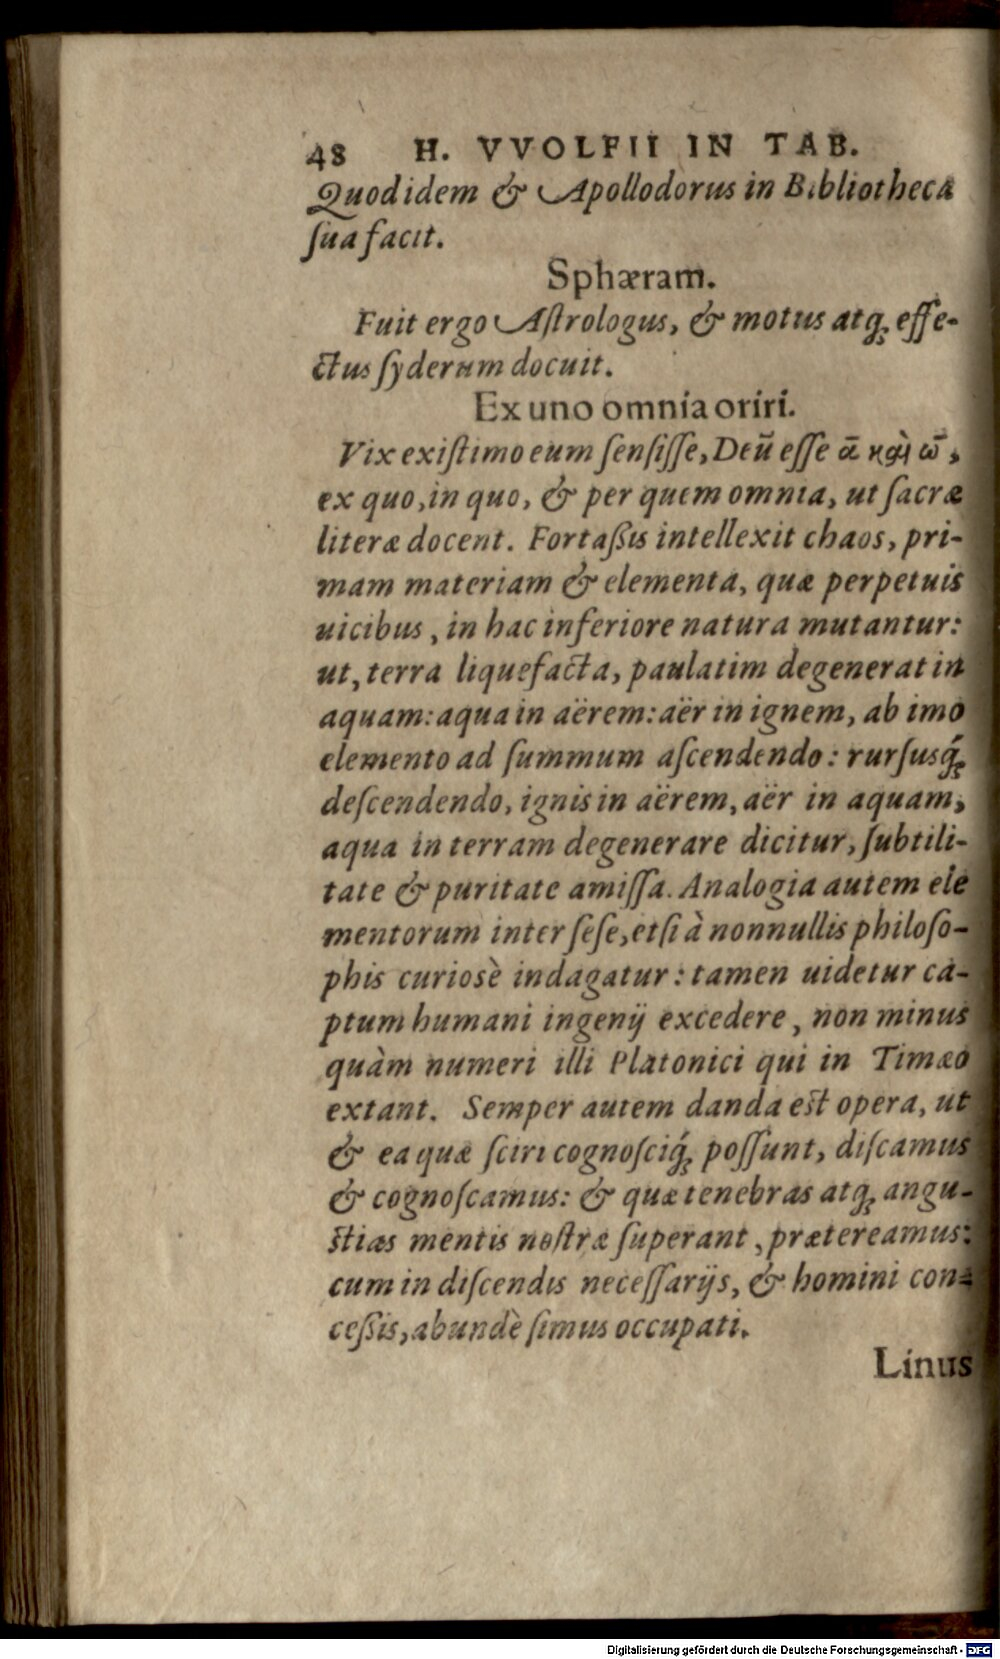 48 H. VVOLFII IN TAB.
Quod idem & Apollodorus in Bibliotheca
ſua facit.
Sphæram.
Fuit ergo Aſtrologus, & motus atq; effe-
ctus ſyderum docuit.
Ex uno omnia oriri.
Vix exiſtimo eum ſenſiſſe, Deū eſſe ᾱ καὶ ω̄,
ex quo, in quo, & per quem omnia, ut ſacræ
literæ docent. Fortaßis intellexit chaos, pri-
mam materiam & elementa, quæ perpetuis
uicibus, in hac inferiore natura mutantur:
ut, terra liquefacta, paulatim degenerat in
aquam: aqua in aërem: aër in ignem, ab imo
elemento ad ſummum aſcendendo: rurſusq́;
deſcendendo, ignis in aërem, aër in aquam,
aqua in terram degenerare dicitur, ſubtili-
tate & puritate amiſſa. Analogia autem ele
mentorum inter ſeſe, etſi à nonnullis philoſo-
phis curiosè indagatur: tamen uidetur ca-
ptum humani ingenij excedere, non minus
quàm numeri illi Platonici qui in Timæo
extant. Semper autem danda est opera, ut
& ea quæ ſciri cognoſciq́; poſſunt, diſcamus
& cognoſcamus: & quæ tenebras atq; angu-
stias mentis noſtræ ſuperant, prætereamus:
cum in diſcendis neceſſarijs, & homini con-
ceßis, abundè ſimus occupati.
Linus
Digitalisierung gefördert durch die Deutsche Forschungsgemeinschaft - DFG